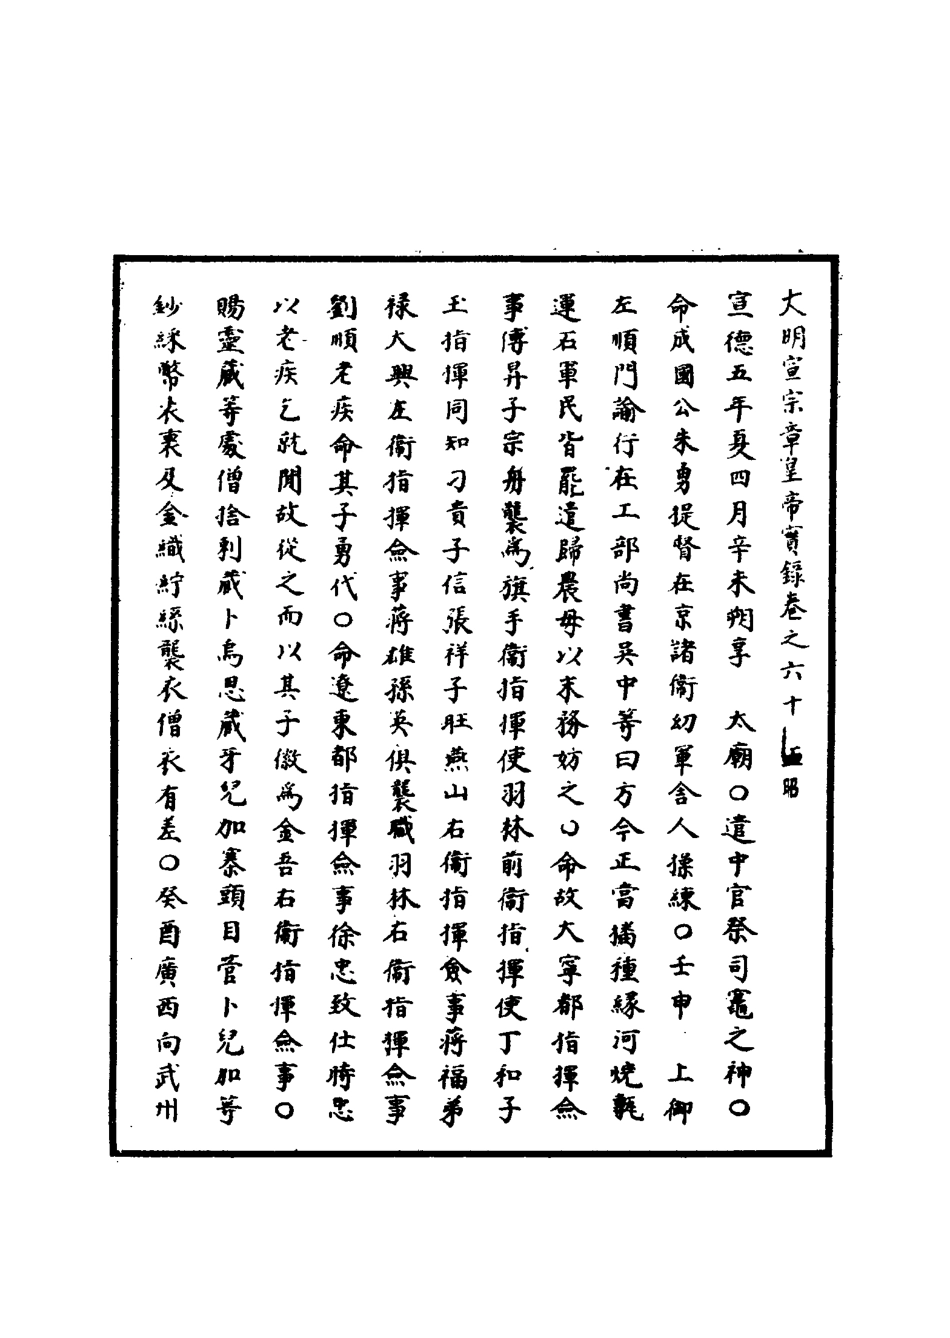 大明宣宗章皇帝實錄卷之六十五昭
宣德五年夏四月辛未朔享　太廟〇遣中官祭司竈之神〇
命成國公朱勇提督在京諸衛幼軍舍人操練〇壬申　上御
左順門諭行在工部尚書吳中等曰方今正當播種緣河燒甎
運石軍民皆罷遣歸農毋以末務妨之〇命故大寧都指揮僉
事傅昇子宗舟襲為旗手衛指揮使羽林前衛指揮使丁和子
玉指揮同知刁貴子信張祥子旺燕山右衛指揮僉事蔣福弟
祿大興左衛指揮僉事蔣雄孫英俱襲職羽林右衛指揮僉事
劉順老疾命其子勇代〇命遼東都指揮僉事徐忠致仕時忠
以老疾乞就閒故從之而以其子儆為金吾右衛指揮僉事〇
賜靈藏等處僧捨剌藏卜烏思藏牙兒加寨頭目管卜兒加等
鈔綵幣衣裏及金織紵絲襲衣僧衣有差〇癸酉廣西向武州